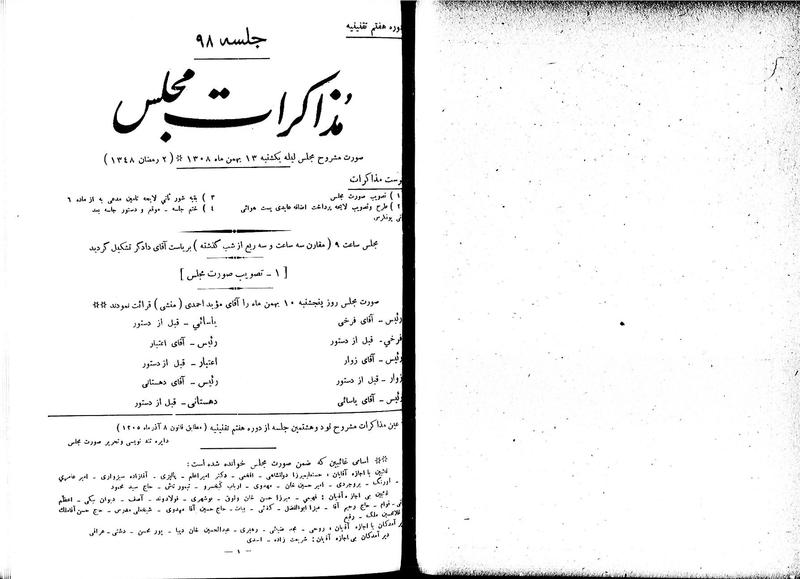 دوره هفتم تقنینیه
جلسه ۹۸
مذاکرات مجلس
صورت مشروح مجلس لیله یکشنبه ۱۳ بهمن ماه ۱۳۰۸ * (۲ رمضان ۱۳۴۸)
رست مذاکرات
۱) تصویب صورت مجلس
۲) طرح وتصویب لایحه پرداخت اضافه عایدی پست هوائی
۳) بقیه شور ثانی لایحه تامین مدعی به از ماده ۶
۴) ختم جلسه - موقع و دستور جلسه بعد
مجلس ساعت ۹ (مقارن سه ساعت و سه ربع از شب گذشته) بریاست آقای دادگر تشکیل گردید
[۱ - تصویب صورت مجلس]
صورت مجلس روز پنجشنبه ۱۰ بهمن ماه را آقای مؤید احمدی (منشی) قرائت نمودند **
رئیس - آقای فرخی
فرخی - قبل از دستور
رئیس - آقای زوار
زوار - قبل از دستور
رئیس - آقای یاسائی
یاسائی - قبل از دستور
رئیس - آقای اعتبار
اعتبار - قبل از دستور
رئیس - آقای دهستانی
دهستانی - قبل از دستور
عین مذاکرات مشروح نود و هشتمین جلسه از دوره هفتم تقنینیه (مطابق قانون ۸ آذر ماه ۱۳۰۵)
دایره تند نویسی و تحریر صورت مجلس
** اسامی غائبین که ضمن صورت مجلس خوانده شده است:
غائبین با اجازه آقایان: حسنعلیمیرزا دولتشاهی - افخمی - دکتر امیراعلم - پالیزی - آقازاده سبزواری - امیر عامری
- اورنگ - بروجردی - امیر حسین خان - مهدوی - ارباب کیخسرو - تیمور تاش - حاج سید محمود
غائبین بی اجازه آقایان: فهیمی - میرزا حسن خان وثوق - بوشهری - فولادوند - آصف - دیوان بیگی - اعظم
- قوام - حاج رحیم آقا - میرزا ابوالفضل - کفائی - بیات - حاج حسین آقا مهدوی - شیخعلی مدرس - حاج حسن آقاملک
غلامحسین ملک - رفیع
دیر آمدگان با اجازه آقایان: روحی - مجد ضیائی - رهبری - عبدالحسین خان دیبا - پور محسن - دشتی - عراقی
دیر آمدگان بی اجازه آقایان: شریعت زاده - اسدی
- ۱ -